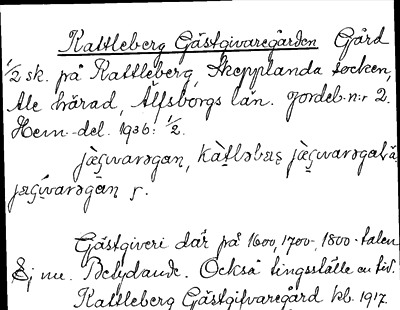 Kattleberg Gästgivaregården Gård
1/2 sk. på Kattleberg, Skepplanda socken,
Ale härad, Älfsborgs län. Jordeb.n:r 2.
Hem.-del. 1936: 1/2.
Gästgiveri där på 1600, 1700-, 1800-talen
Ej nu. Betydande. Också tingsställe en tid.
Kattleberg Gästgifvaregård kb. 1917